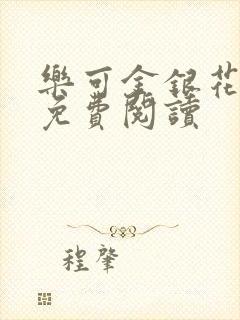 樂可金銀花
免費閱讀
程肇